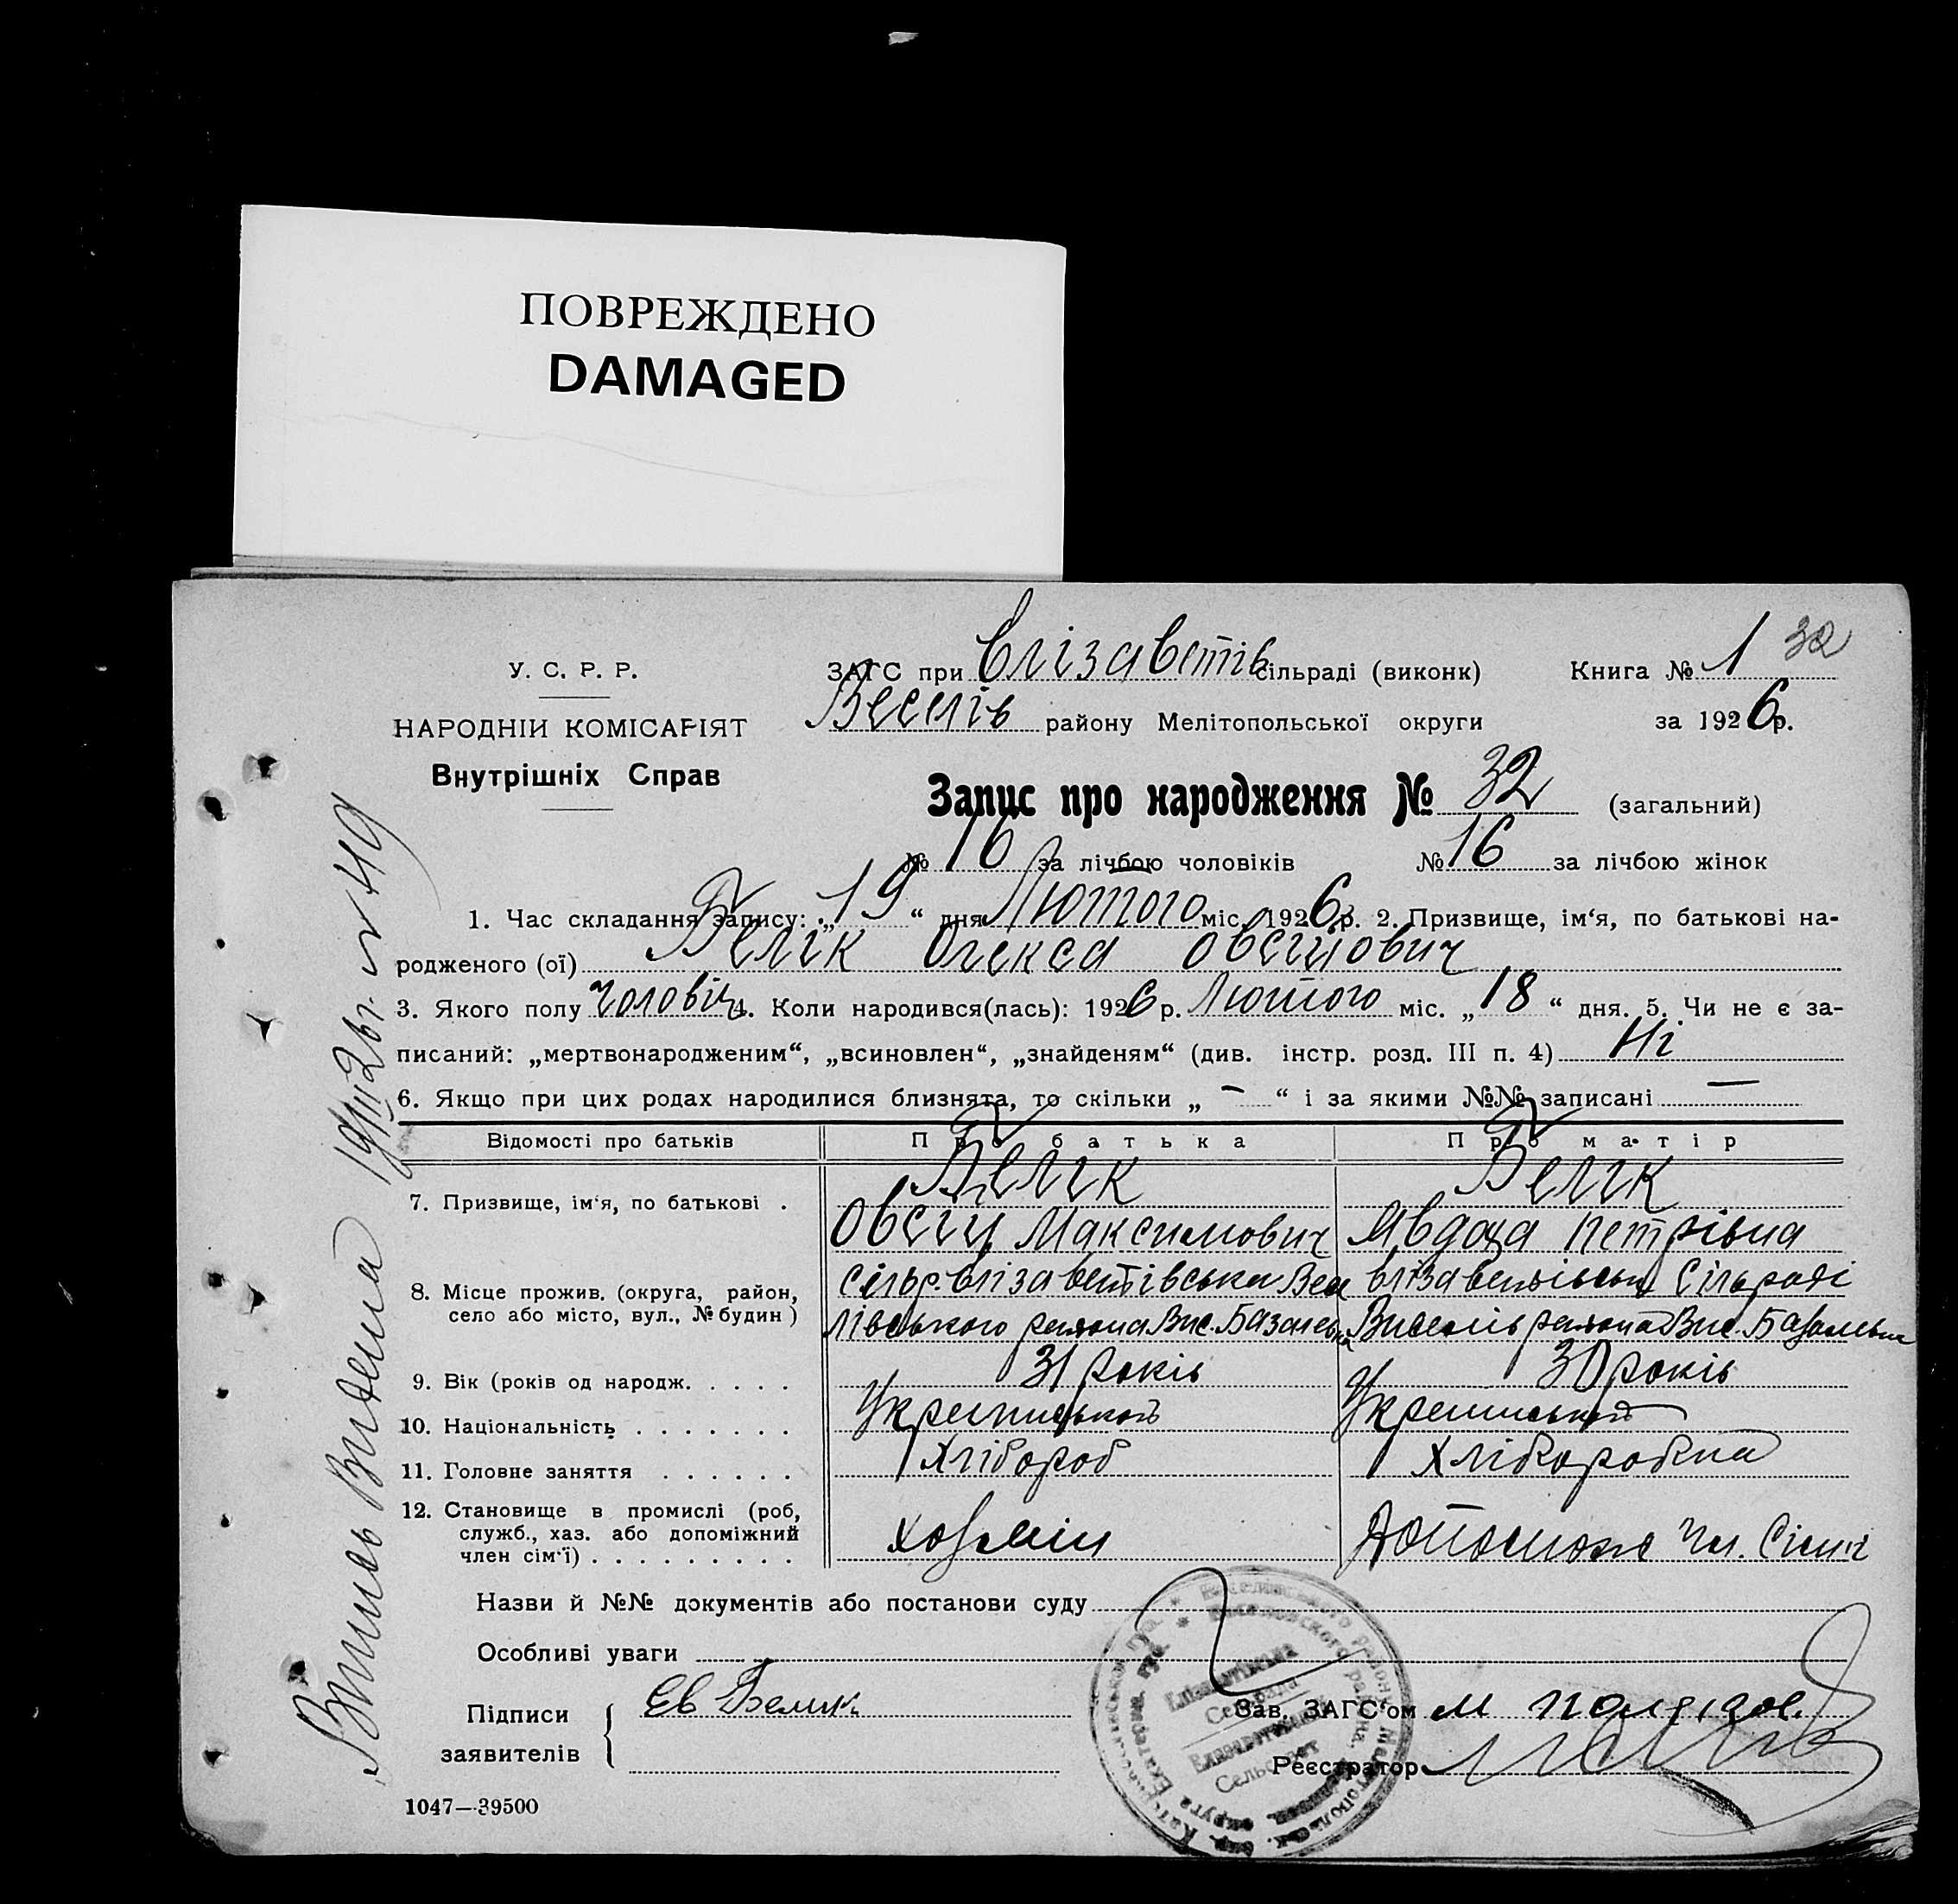 ПОВРЕЖДЕНО
DAMAGED
32
У. С. Р. Р.
ЗАГС при Єлізаветів сільраді (виконк)
Книга № 1
НАРОДНІЙ КОМІСАРІЯТ
Веселів району Мелітопольської округи
за 1926 р.
Внутрішніх Справ
Запис про народження № 32 (загальний)
№ 16 за лічбою чоловіків № 16 за лічбою жінок
1. Час складання запису: „19“ дня Лютого міс. 1926 р. 2. Призвище, ім‘я, по батькові на-
родженого (ої) Белік Олекса Овсійович
3. Якого полу Чоловіч 4. Коли народився(лась): 1926 р. Лютого міс. „18“ дня. 5. Чи не є за-
писаний: „мертвонародженим“, „всиновлен“, „знайденям“ (див. інстр. розд. III п. 4) Ні
6. Якщо при цих родах народилися близнята, то скільки „ – “ і за якими №№ записані —
Відомості про батьків
Про батька
Про матір
7. Призвище, ім‘я, по батькові .
Белік
Овсій Максимович
Белік
Явдоха Петрівна
8. Місце прожив. (округа, район,
село або місто, вул., № будин)
Сільр. Єлізаветівська Весе
лівського района Вис.
Єлізаветівськ Сільраді
района Вис.
9. Вік (років од народж. . . . .
31 років
30 років
10. Національність . . . . . . .
11. Головне заняття . . . . . .
Хлібороб
Хліборобка
12. Становище в промислі (роб,
служб., хаз. або допоміжний
член сім‘ї) . . . . . . . . .
Хозяїн
Допоможе Чл. Сімї
Назви й №№ документів або постанови суду
Особливі уваги
Підписи
заявителів
Ев Белик
Зав. ЗАГС‘ом М
Реєстратор
1047—39500
Єлізаветівська
Сельрада
Елизаветовский
Сельсовет